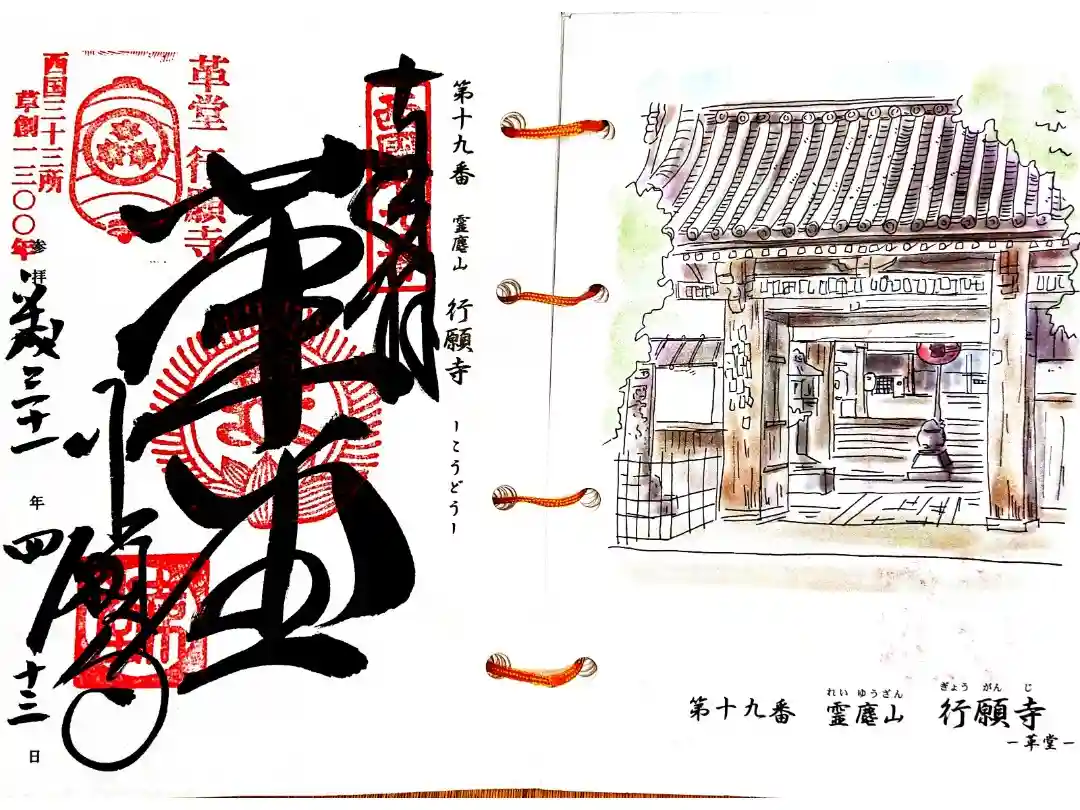 第十九番 霊麀山 行願寺 ーこうどうー
西国十九番
革堂
革堂 行願寺
西国三十三所
草創一三〇〇年
行願寺
参拝 平成三十一年 四 十三日
れいゆうざん ぎょうがんじ
第十九番 霊麀山 行願寺
ー革堂ー